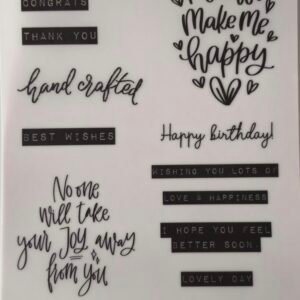 CONGRATS
THANK YOU
hand crafted
BEST WISHES
No one
will take
your Joy away
from you
make me
happy
Happy birthday!
WISHING YOU LOTS OF
LOVE & HAPPINESS
I HOPE YOU FEEL
BETTER SOON.
LOVELY DAY